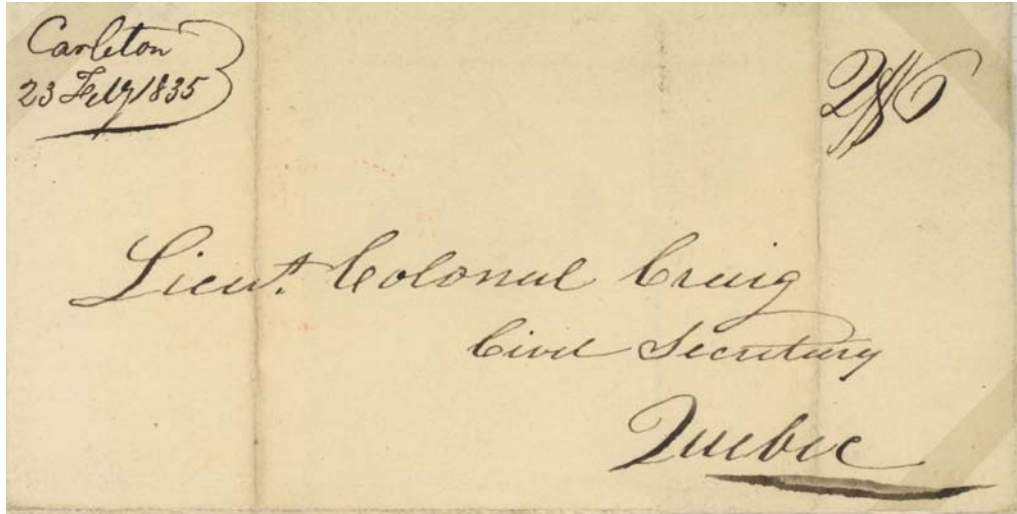 Carleton
23 Feby 1835
2/6
Lieut. Colonel Craig
Civil Secretary
Quebec